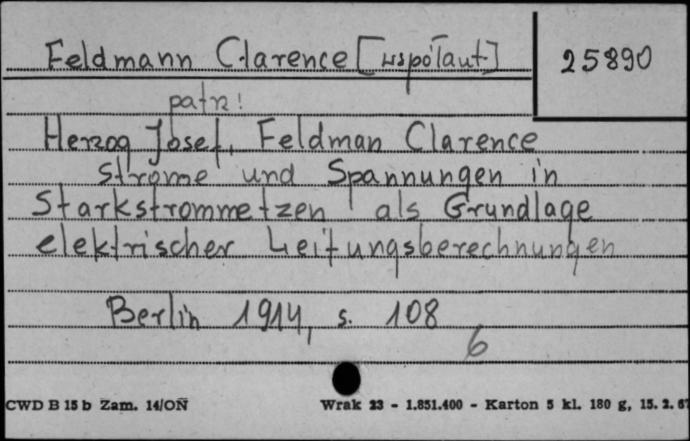 Feldmann Clarence [współaut]
25890
patrz!
Herzog Josef, Feldman Clarence
Ströme und Spannungen in
Starkstrommetzen als Grundlage
elektrischer Leitungsberechnungen
Berlin 1914, s. 108
6
CWD B 15 b Zam. 14/ON
Wrak 23 - 1.851.400 - Karton 5 kl. 180 g, 15. 2. 67